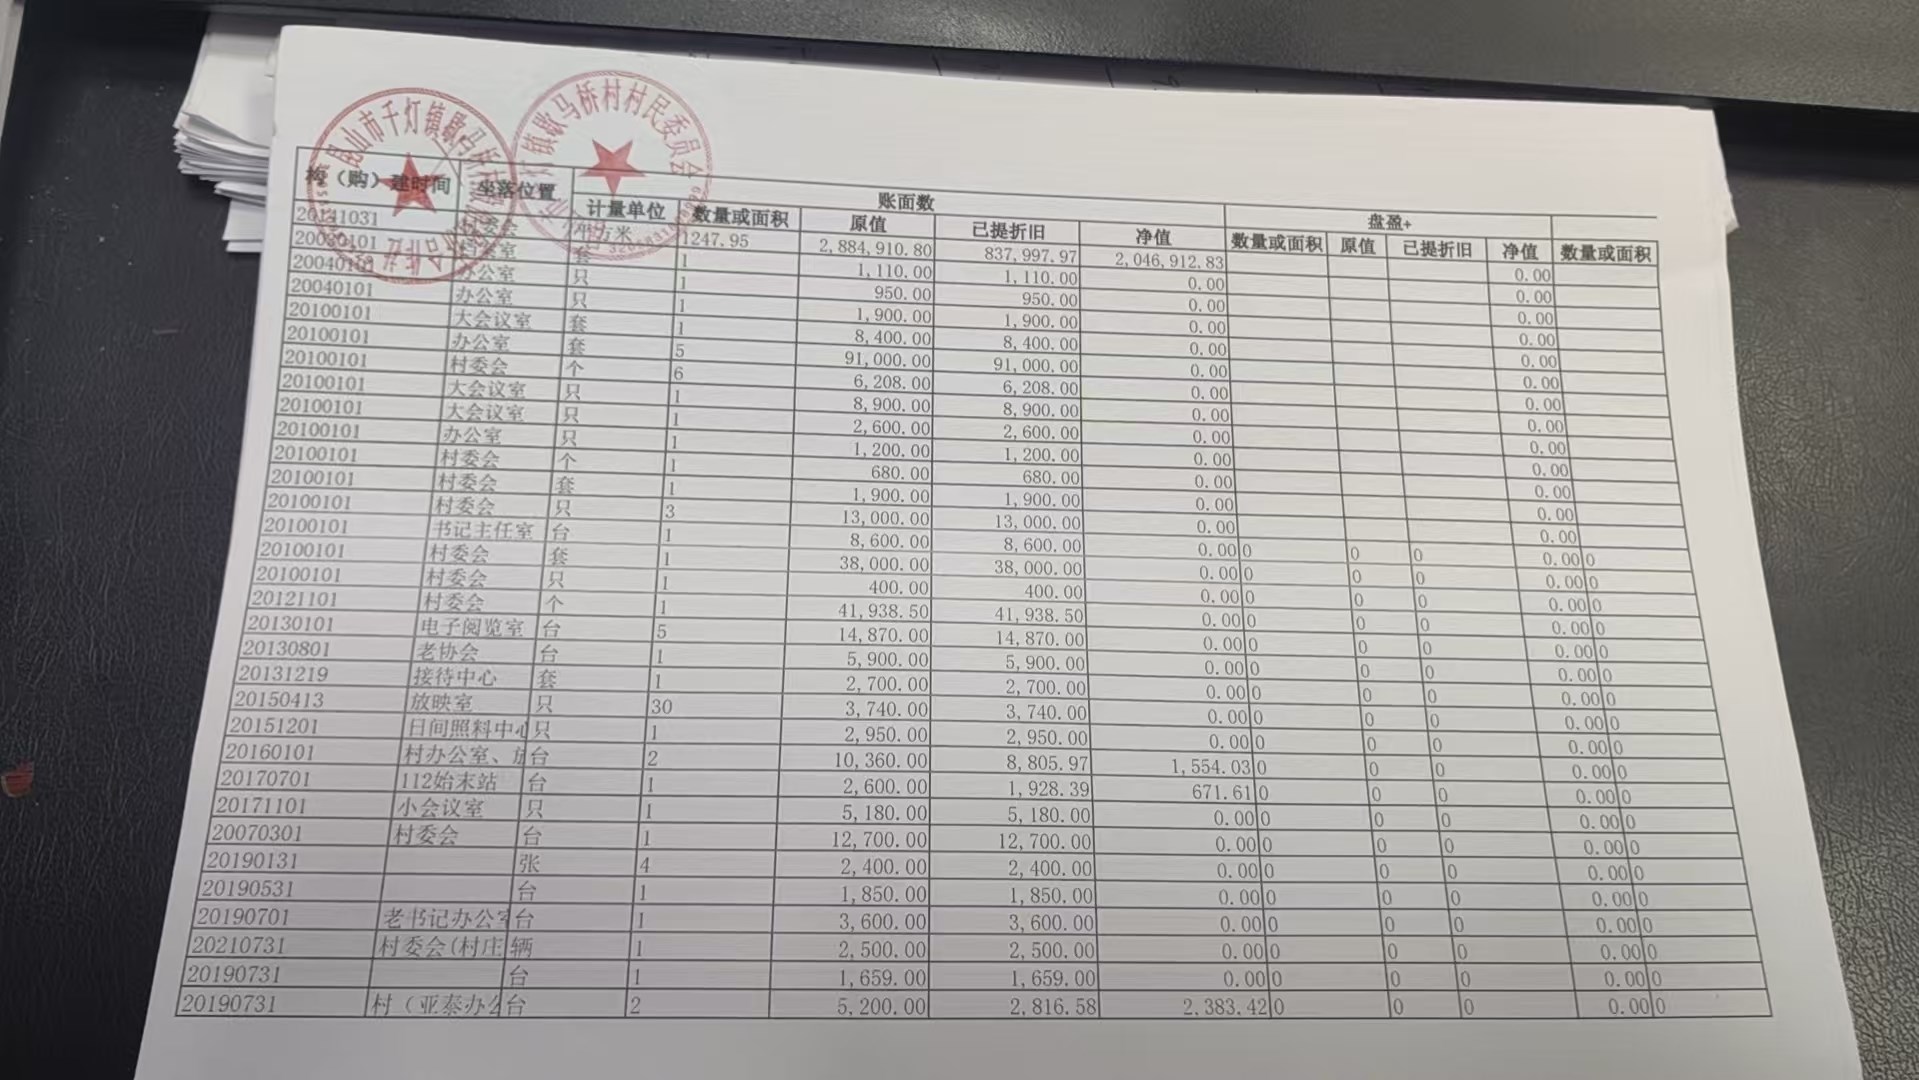 昆山市千灯镇歇马桥村
灯镇歇马桥村村民委员会
构（购）建时间 坐落位置 账面数 盘盈+
计量单位 数量或面积 原值 已提折旧 净值 数量或面积 原值 已提折旧 净值 数量或面积
20141031 村委会 平方米 1247.95 2,884,910.80 837,997.97 2,046,912.83 0.00
20030101 套 1 1,110.00 1,110.00 0.00 0.00
20040101 办公室 只 1 950.00 950.00 0.00 0.00
20040101 办公室 只 1 1,900.00 1,900.00 0.00 0.00
20100101 大会议室 套 1 8,400.00 8,400.00 0.00 0.00
20100101 办公室 套 5 91,000.00 91,000.00 0.00 0.00
20100101 村委会 个 6 6,208.00 6,208.00 0.00 0.00
20100101 大会议室 只 1 8,900.00 8,900.00 0.00 0.00
20100101 大会议室 只 1 2,600.00 2,600.00 0.00 0.00
20100101 办公室 只 1 1,200.00 1,200.00 0.00 0.00
20100101 村委会 个 1 680.00 680.00 0.00 0.00
20100101 村委会 套 1 1,900.00 1,900.00 0.00 0.00
20100101 村委会 只 3 13,000.00 13,000.00 0.00 0.00
20100101 书记主任室 台 1 8,600.00 8,600.00 0.00 0 0 0 0.00 0
20100101 村委会 套 1 38,000.00 38,000.00 0.00 0 0 0 0.00 0
20100101 村委会 只 1 400.00 400.00 0.00 0 0 0 0.00 0
20121101 村委会 个 1 41,938.50 41,938.50 0.00 0 0 0 0.00 0
20130101 电子阅览室 台 5 14,870.00 14,870.00 0.00 0 0 0 0.00 0
20130801 老协会 台 1 5,900.00 5,900.00 0.00 0 0 0 0.00 0
20131219 接待中心 套 1 2,700.00 2,700.00 0.00 0 0 0 0.00 0
20150413 放映室 只 30 3,740.00 3,740.00 0.00 0 0 0 0.00 0
20151201 日间照料中心 只 1 2,950.00 2,950.00 0.00 0 0 0 0.00 0
20160101 村办公室、 台 2 10,360.00 8,805.97 1,554.03 0 0 0 0.00 0
20170701 112始末站 台 1 2,600.00 1,928.39 671.61 0 0 0 0.00 0
20171101 小会议室 只 1 5,180.00 5,180.00 0.00 0 0 0 0.00 0
20070301 村委会 台 1 12,700.00 12,700.00 0.00 0 0 0 0.00 0
20190131 张 4 2,400.00 2,400.00 0.00 0 0 0 0.00 0
20190531 台 1 1,850.00 1,850.00 0.00 0 0 0 0.00 0
20190701 老书记办公室 台 1 3,600.00 3,600.00 0.00 0 0 0 0.00 0
20210731 村委会(村庄 辆 1 2,500.00 2,500.00 0.00 0 0 0 0.00 0
20190731 台 1 1,659.00 1,659.00 0.00 0 0 0 0.00 0
20190731 村（亚泰办公 台 2 5,200.00 2,816.58 2,383.42 0 0 0 0.00 0